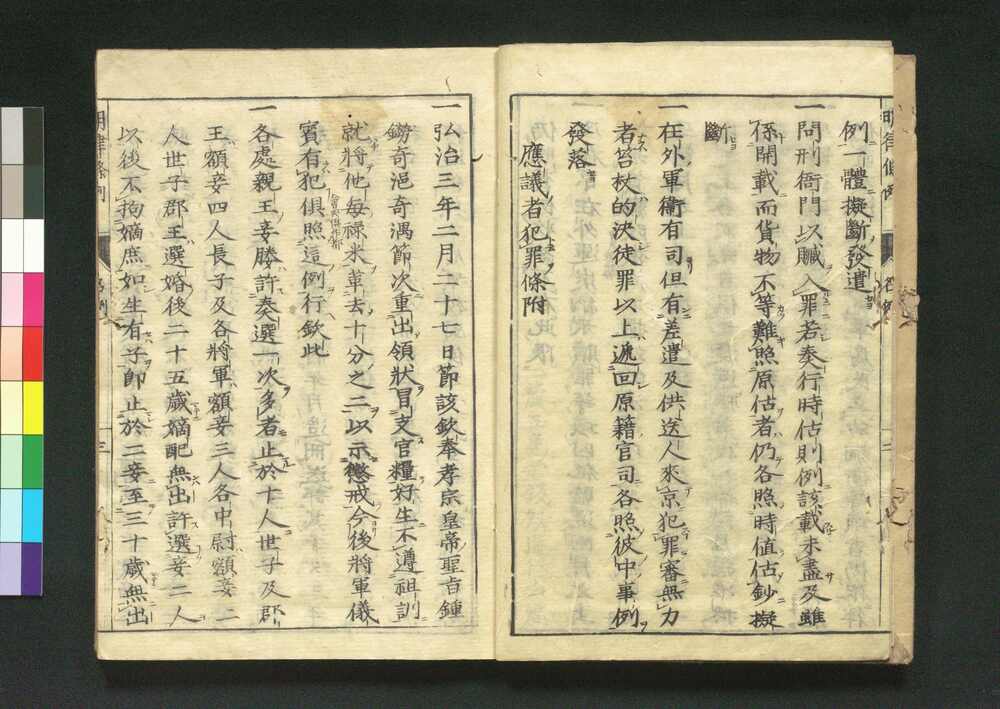 例一體擬斷發遣
一問刑衙門以贓入罪若奏行時估則例該載未盡及雖
係開載而貨物不等難照原估者仍各照時値估鈔擬
斷
一在外軍衞有司但有差遣及供送人來京犯罪審無力
者笞杖的決徒罪以上遞回原籍官司各照彼中事例
發落
應議者犯罪條附
一弘治三年二月二十七日節該欽奉孝宗皇帝聖旨鍾
鐒奇浥奇湡節次重出領狀冒支官糧好生不遵祖訓
就將他每祿米革去十分之二以示懲戒今後將軍儀
賓有犯俱照這例行欽此
一各處親王妾媵許奏選一次多者止於十人世子及郡
王額妾四人長子及各將軍額妾三人各中尉額妾二
人世子郡王選婚後二十五歲嫡配無出許選妾二人
以後不拘嫡庶如生有子即止於二妾至三十歲無出
明律條例
名例
三